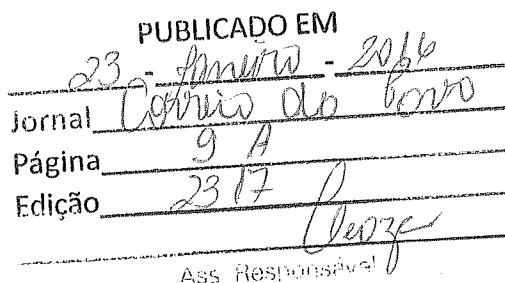 PUBLICADO EM
23 - Janeiro - 2016
Jornal Correio do Povo
Página 9 A
Edição 2317
Ass. Responsável